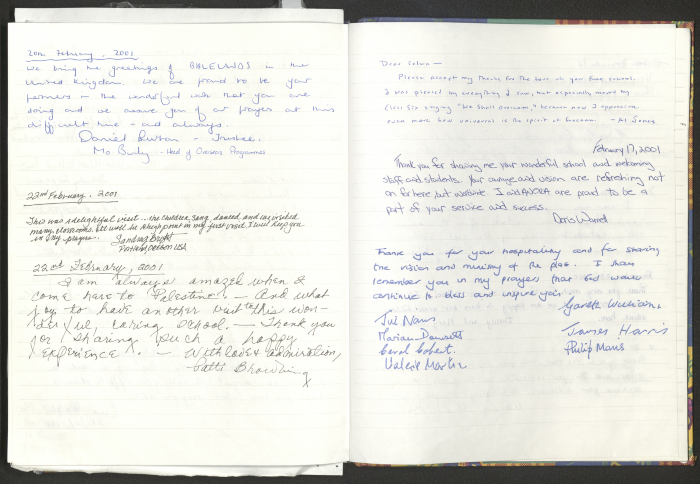 20th February, 2001
We bring the greetings of BIBLELANDS in the
United Kingdom. We are proud to be your
partners in the wonderful work that you are
doing and we assure you of our prayers at this
difficult time - and always.
Daniel Burton - Trustee.
Mo - Head of Overseas Programmes
22nd February, 2001
This was a delightful visit - the children sang, danced, and we visited
many classrooms. It will be a high point in my first visit. I will keep you
in my prayers. Sandra Bright
Portland, Oregon USA
22nd February, 2001
I am always amazed when I
come here to Palestine. - And what
joy to have another visit to this won-
derful, caring school. - Thank you
for sharing such a happy
experience. - With love & admiration,
Patti Browning
Dear Salwa -
Please accept my thanks for the tour of your fine school.
I was pleased by everything I saw, but especially moved by
class six singing "We shall overcome" because now I appreciate
even more how universal is the spirit of freedom.
February 17, 2001
Thank you for sharing me your wonderful school and welcoming
staff and students. Your courage and vision are refreshing not
only for here but worldwide. I and ANERA are proud to be a
part of your service and success.
Doris Warrell
Thank you for your hospitality and for sharing
the vision and ministry of the place. I shall
remember you in my prayers that God would
continue to bless and inspire you.
Gareth Williams
Marian
James Harris
Carol
Philip
Valerie Martin